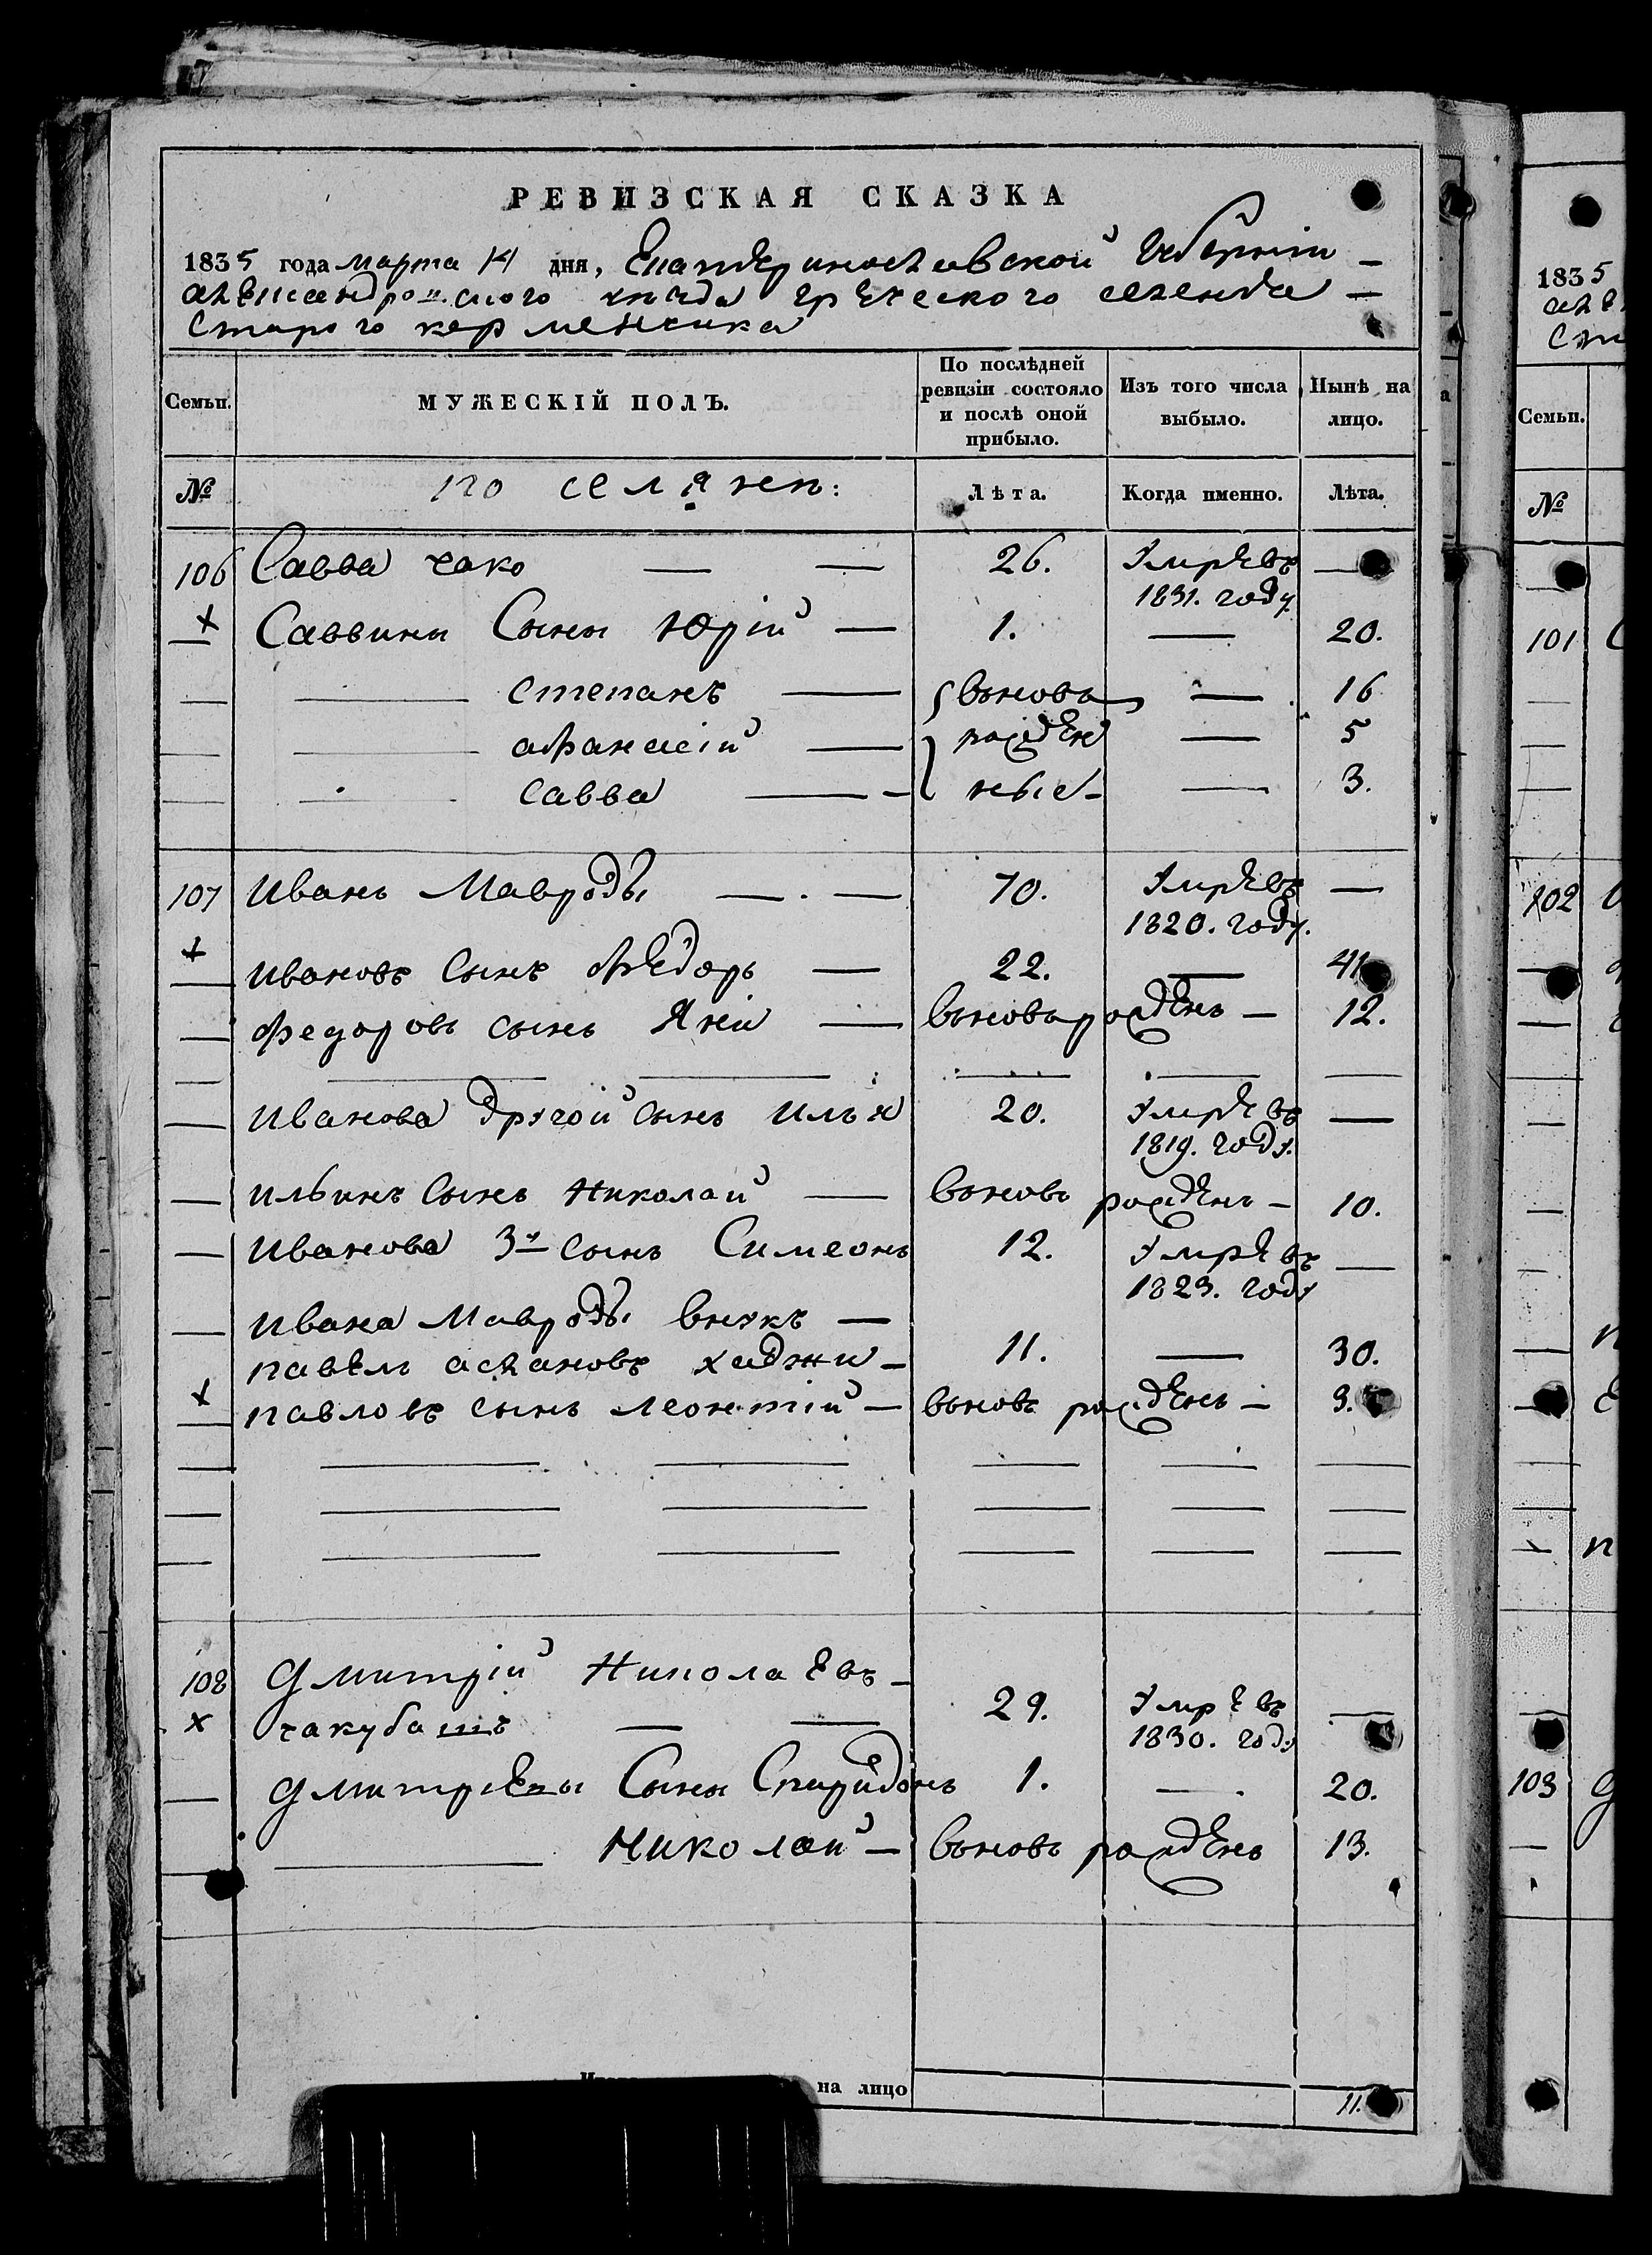 РЕВИЗСКАЯ СКАЗКА
1835 года марта 14 дня, Екатеринославской Губерніи
александровского уезда греческого селенія
Старого керменчика
Семьи.
МУЖЕСКІЙ ПОЛЪ.
По послѣдней ревизіи состояло и послѣ оной прибыло.
Изъ того числа выбыло.
Нынѣ на лицо.
№
поселянъ:
Лѣта.
Когда именно.
Лѣта.
106 Савва чако — — 26. Умре въ 1831. году —
× Саввины Сыны Юрій — 1. — 20.
— степанъ — вьновь — 16
— афанасій — рожден — 5
— савва — ные — 3.
107 Иванъ Мавроды — 70. Умре въ 1820. году. —
× ивановъ Сынъ Федоръ — 22. — 41
— Федоровъ сынъ Яни — вьновь рожденъ — 12.
— Иванова другой сынъ илья 20. Умре въ 1819. году. —
— ильинъ Сынъ Николай — вьновь рожденъ — 10.
— Иванова 3й сынъ Симеонъ 12. Умре въ 1823. году —
— Ивана Мавроды внукъ —
павелъ аслановъ хаджи — 11. — 30.
× павловъ сынъ леонтій — вьновь рожденъ — 9.
108 Дмитрій Николаевъ —
× чакубашъ — — 29. Умре въ 1830. году —
— Дмитріевы Сыны Спиридонъ 1. — 20.
— Николай — вьновь рожденъ 13.
на лицо 11.
1835
Семьи.
№
101
102
103